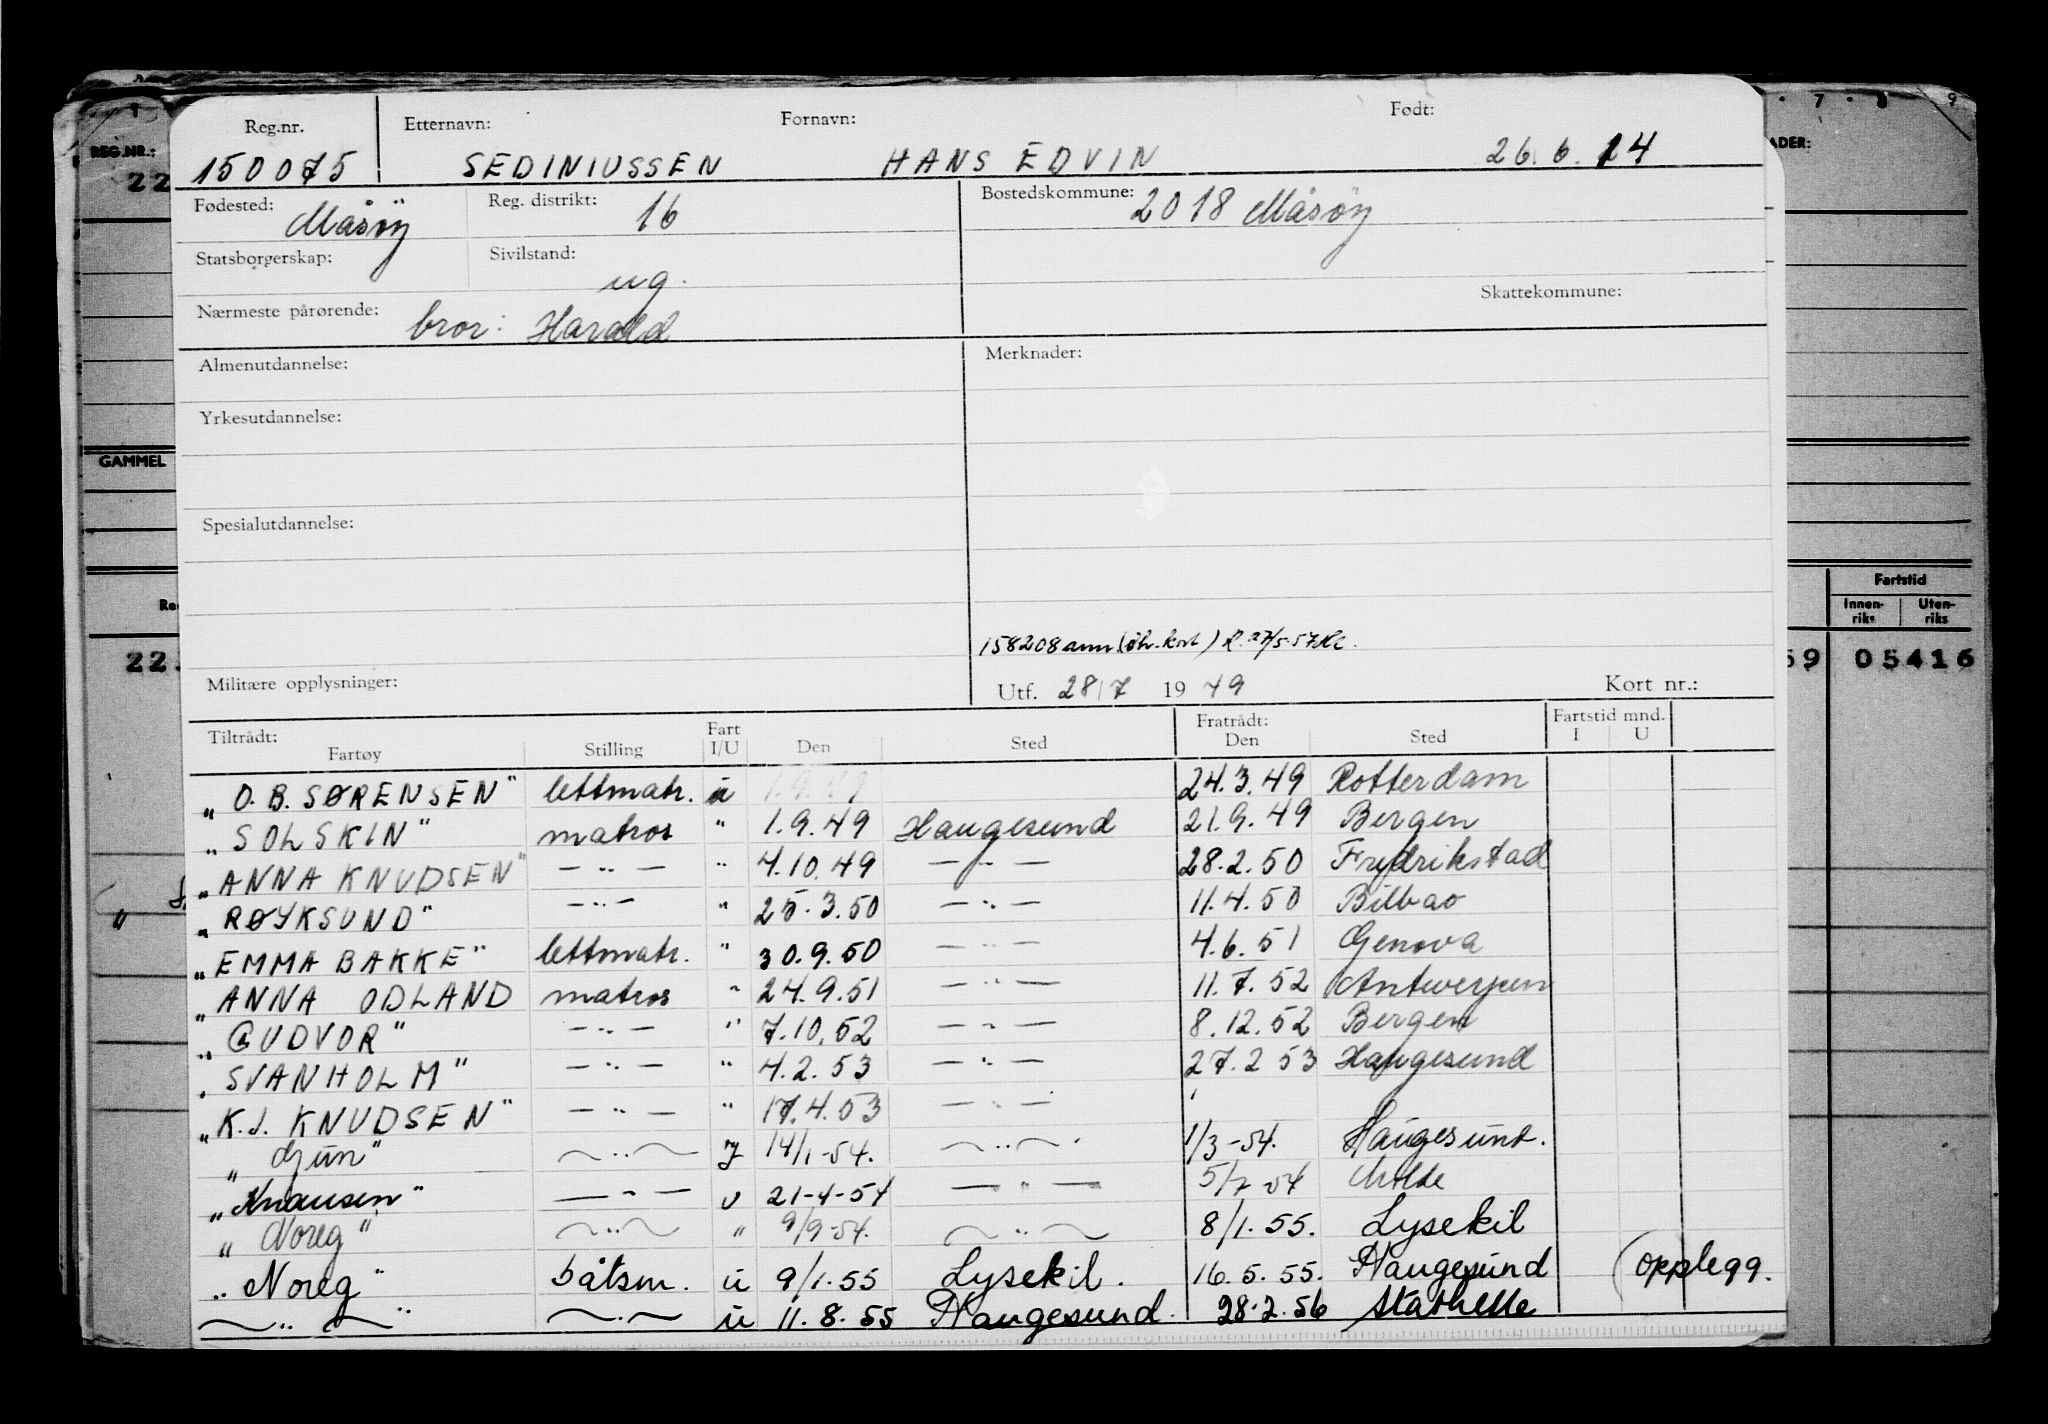 Reg.nr. Etternavn: Fornavn: Født:
150075 SEDINIUSSEN HANS EDVIN 26.6.14
REG.NR.: 7 8 9
22 ADER:
Fødested: Måsøy Reg. distrikt: 16 Bostedskommune: 2018 Måsøy
Statsborgerskap: Sivilstand: ug.
Skattekommune:
Nærmeste pårørende: bror: Harald
Almenutdannelse: Merknader:
Yrkesutdannelse:
GAMMEL
Spesialutdannelse:
Fartstid
Innen-riks Uten-riks
158208 ann. (øv. kort) R. 27/5-57
22. 59 05416
Militære opplysninger: Utf. 28/7 1949 Kort nr.:
Tiltrådt: Fart Fratrådt: Fartstid mnd.
Fartøy Stilling I/U Den Sted Den Sted I U
„O. B. SØRENSEN" lettmatr. u 1.9.49 24.3.49 Rotterdam
„SOLSKIN" matros " 1.9.49 Haugesund 21.9.49 Bergen
„ANNA KNUDSEN" — " — " 4.10.49 — " — 28.2.50 Frydrikstad
„RØYKSUND" — " — " 25.3.50 — " — 11.4.50 Bilbao
„EMMA BAKKE" lettmatr. " 30.9.50 — " — 4.6.51 Genova
„ANNA ODLAND matros " 24.9.51 — " — 11.7.52 Antwerpen
„GUDVOR" — " — " 7.10.52 — " — 8.12.52 Bergen
„SVANHOLM" — " — " 4.2.53 — " — 27.2 53 Haugesund
„K.J. KNUDSEN" — " — " 17.4.53 — " —
„Gun" — " — I 14/1-54. — " — 1/3-54. Haugesund.
„Knausen" — " — u 21-4-54 — " — 5/7 54 Molde
„Noreg" — " — " 9/9-54. — " — 8/1.55. Lysekil
„Noreg" båtsm. u 9/1.55 Lysekil. 16.5.55. Haugesund (opplegg.
— " — " — " — u 11.8.55 Haugesund. 28.2.56 Stathelle